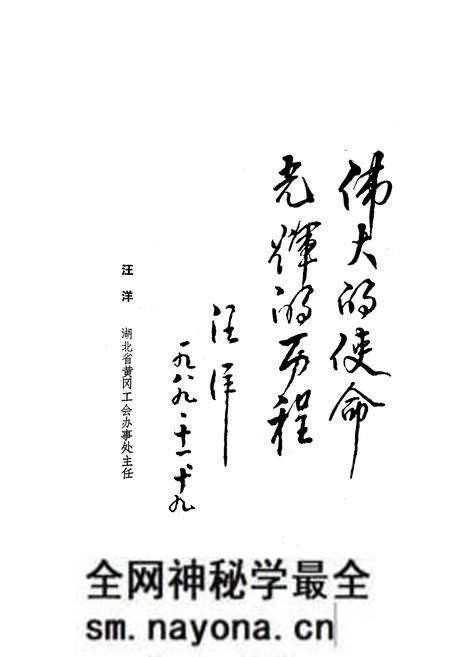 伟大的使命
光辉的历程
汪洋
一九八九·十一·十九
汪洋 湖北省黄冈工会办事处主任
全网神秘学最全
sm.nayona.cn